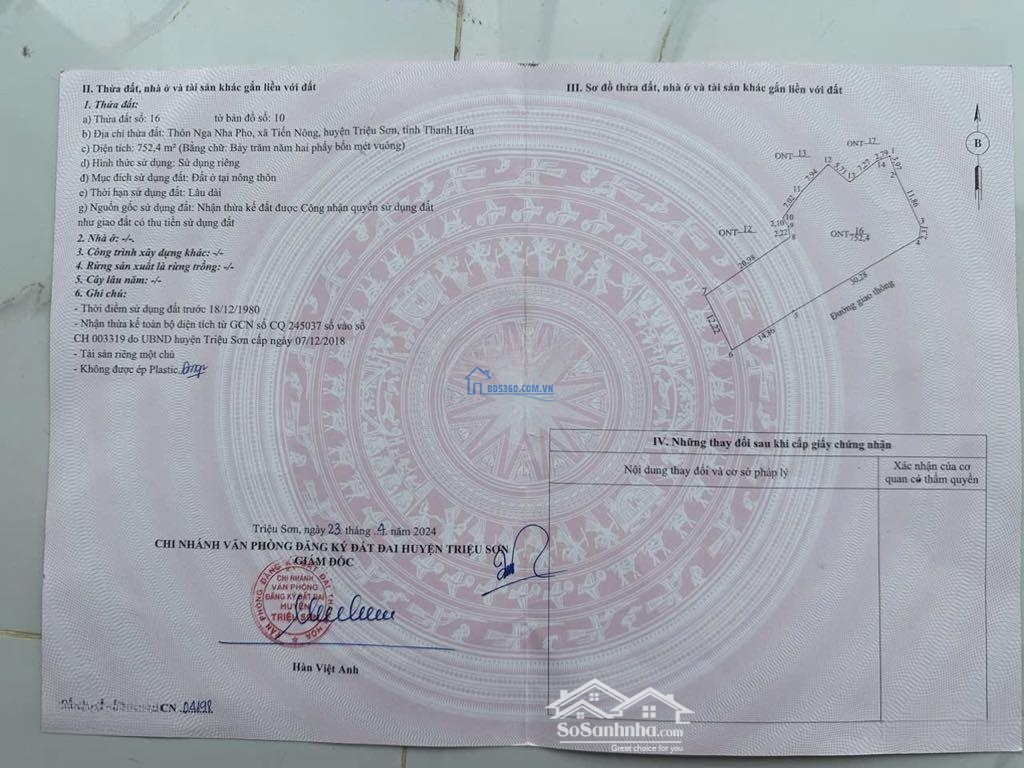 II. Thửa đất, nhà ở và tài sản khác gắn liền với đất
1. Thửa đất:
a) Thửa đất số: 16 tờ bản đồ số: 10
b) Địa chỉ thửa đất: Thôn Nga Nha Pho, xã Tiến Nông, huyện Triệu Sơn, tỉnh Thanh Hóa
c) Diện tích: 752,4 m² (Bằng chữ: Bảy trăm năm hai phẩy bốn mét vuông)
d) Hình thức sử dụng: Sử dụng riêng
đ) Mục đích sử dụng đất: Đất ở tại nông thôn
e) Thời hạn sử dụng đất: Lâu dài
g) Nguồn gốc sử dụng đất: Nhận thừa kế đất được Công nhận quyền sử dụng đất
như giao đất có thu tiền sử dụng đất
2. Nhà ở: -/-.
3. Công trình xây dựng khác: -/-
4. Rừng sản xuất là rừng trồng: -/-
5. Cây lâu năm: -/-
6. Ghi chú:
- Thời điểm sử dụng đất trước 18/12/1980
- Nhận thừa kế toàn bộ diện tích từ GCN số CQ 245037 số vào sổ
CH 003319 do UBND huyện Triệu Sơn cấp ngày 07/12/2018
- Tài sản riêng một chủ
- Không được ép Plastic.
Triệu Sơn, ngày 23 tháng 4 năm 2024
CHI NHÁNH VĂN PHÒNG ĐĂNG KÝ ĐẤT ĐAI HUYỆN TRIỆU SƠN
GIÁM ĐỐC
CHI NHÁNH
VĂN PHÒNG
ĐĂNG KÝ ĐẤT ĐAI
HUYỆN
TRIỆU SƠN
Hàn Việt Anh
CN 04198
III. Sơ đồ thửa đất, nhà ở và tài sản khác gắn liền với đất
B
ONT 17
ONT 13
12
5,71
13
7,27
14
2,79
1
3,97
2
7,94
11
11,86
7,02
3
4
10
2,10
9
2,22
8
ONT 12
ONT 16
752,4
20,98
30,28
7
Đường giao thông
12,22
5
14,86
6
IV. Những thay đổi sau khi cấp giấy chứng nhận
Nội dung thay đổi và cơ sở pháp lý
Xác nhận của cơ
quan có thẩm quyền
BDS360.COM.VN
SoSanhnha.com
Great choice for you